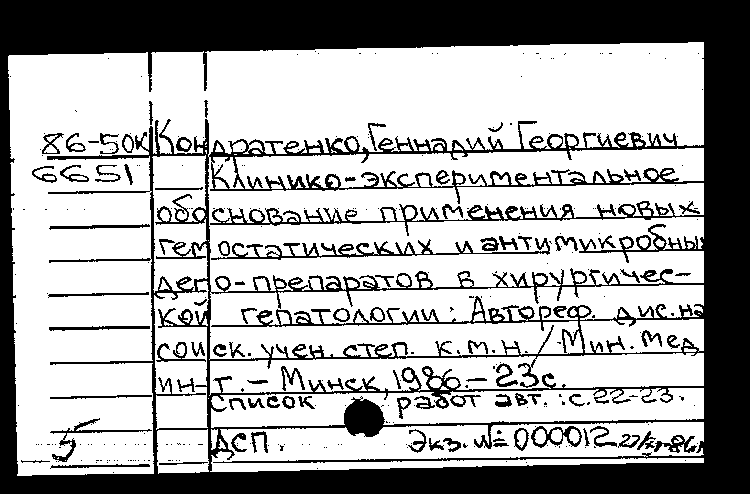 86-50К Кондратенко, Геннадий Георгиевич
6651 Клинико-экспериментальное
обоснование применения новых
гемостатических и антимикробных
депо-препаратов в хирургичес-
кой гепатологии: Автореф. дис. на
соиск. учен. степ. к.м.н. / Мин. мед.
ин-т. – Минск, 1986. – 23 с.
Список работ авт.: с. 22-23.
5 ДСП. Экз. № 000012